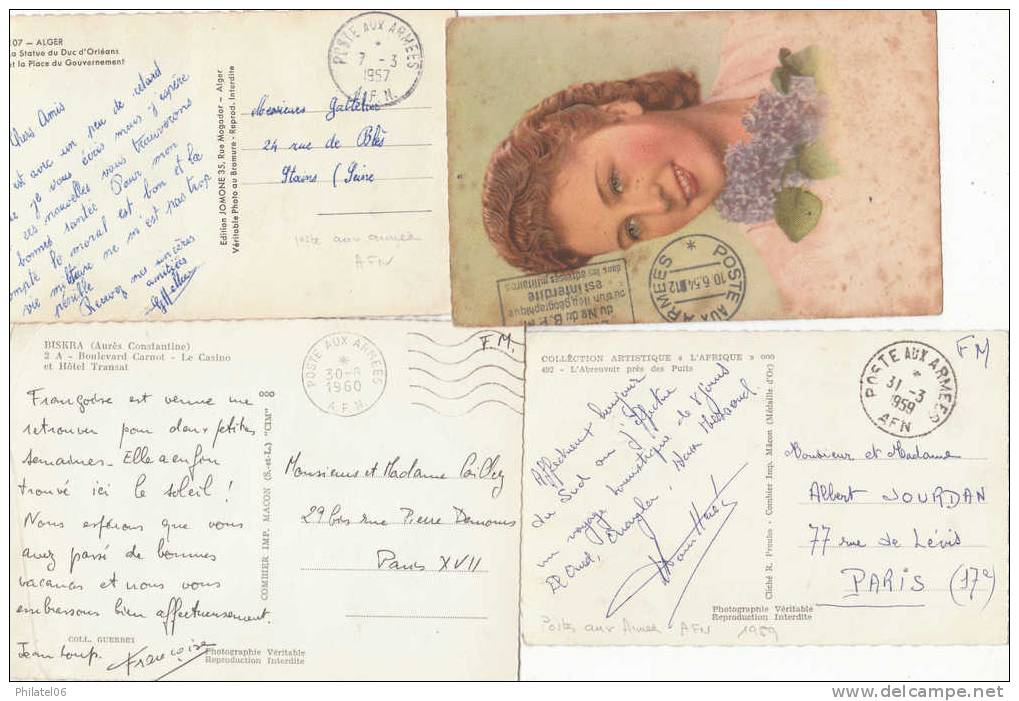 107 — ALGER
La Statue du Duc d'Orléans
et la Place du Gouvernement
Chers Amis
est avec un peu de retard
que je vous écris mais j'espère
que ces nouvelles vous trouverons
bonnes santée Pour mon
compte le moral est bon et la
vie militaire ne m'est pas trop
pénible
Recevez mes sincères
amitiées
Edition JOMONE 35, Rue Mogador — Alger
Véritable Photo au Bromure - Reprod. Interdite
POSTE AUX ARMEES
*
7 -3
1957
A.F.N.
Messieurs
24 rue de Blés
Stains (Seine
poste aux armées
AFN
POSTE AUX ARMEES
*
10.6.54 12
du No du B.P.M
ou d'un lieu géographique
est interdite
dans les adresses militaires
BISKRA (Aurès Constantine)
2 A - Boulevard Carnot - Le Casino
et Hôtel Transat
POSTE AUX ARMEES
*
30-8
1960
A.F.N
F.M.
Françoise est venue me
retrouver pour deux petites
semaines - Elle a enfin
trouvé ici le soleil !
Nous espérons que vous
avez passé de bonnes
vacances et nous vous
embrassons bien affectueusement.
Jean Loup. Françoise
COLL. GUERBEI
Photographie Véritable
Reproduction Interdite
COMBIER IMP. MACON (S.-et-L.) "CIM"
Monsieur et Madame
29 bis rue Pierre Demours
Paris XVII
COLLECTION ARTISTIQUE « L'AFRIQUE » 000
492 - L'Abreuvoir près des Puits
POSTE AUX ARMEES
*
31 -3
1959
AFN
FM
Affectueux bonjour
du Sud où j'effectue
un voyage touristique de 8 jours
El Oued, Ouargla, Hassi Messaoud
Photographie Véritable
Reproduction Interdite
Cliché R. Prouho - Combier Imp. Mâcon (Médaille d'Or)
Monsieur et Madame
Albert JOURDAN
77 rue de Lévis
PARIS (17e)
Postes aux Armées AFN 1959
Philatel06
www.delcampe.net